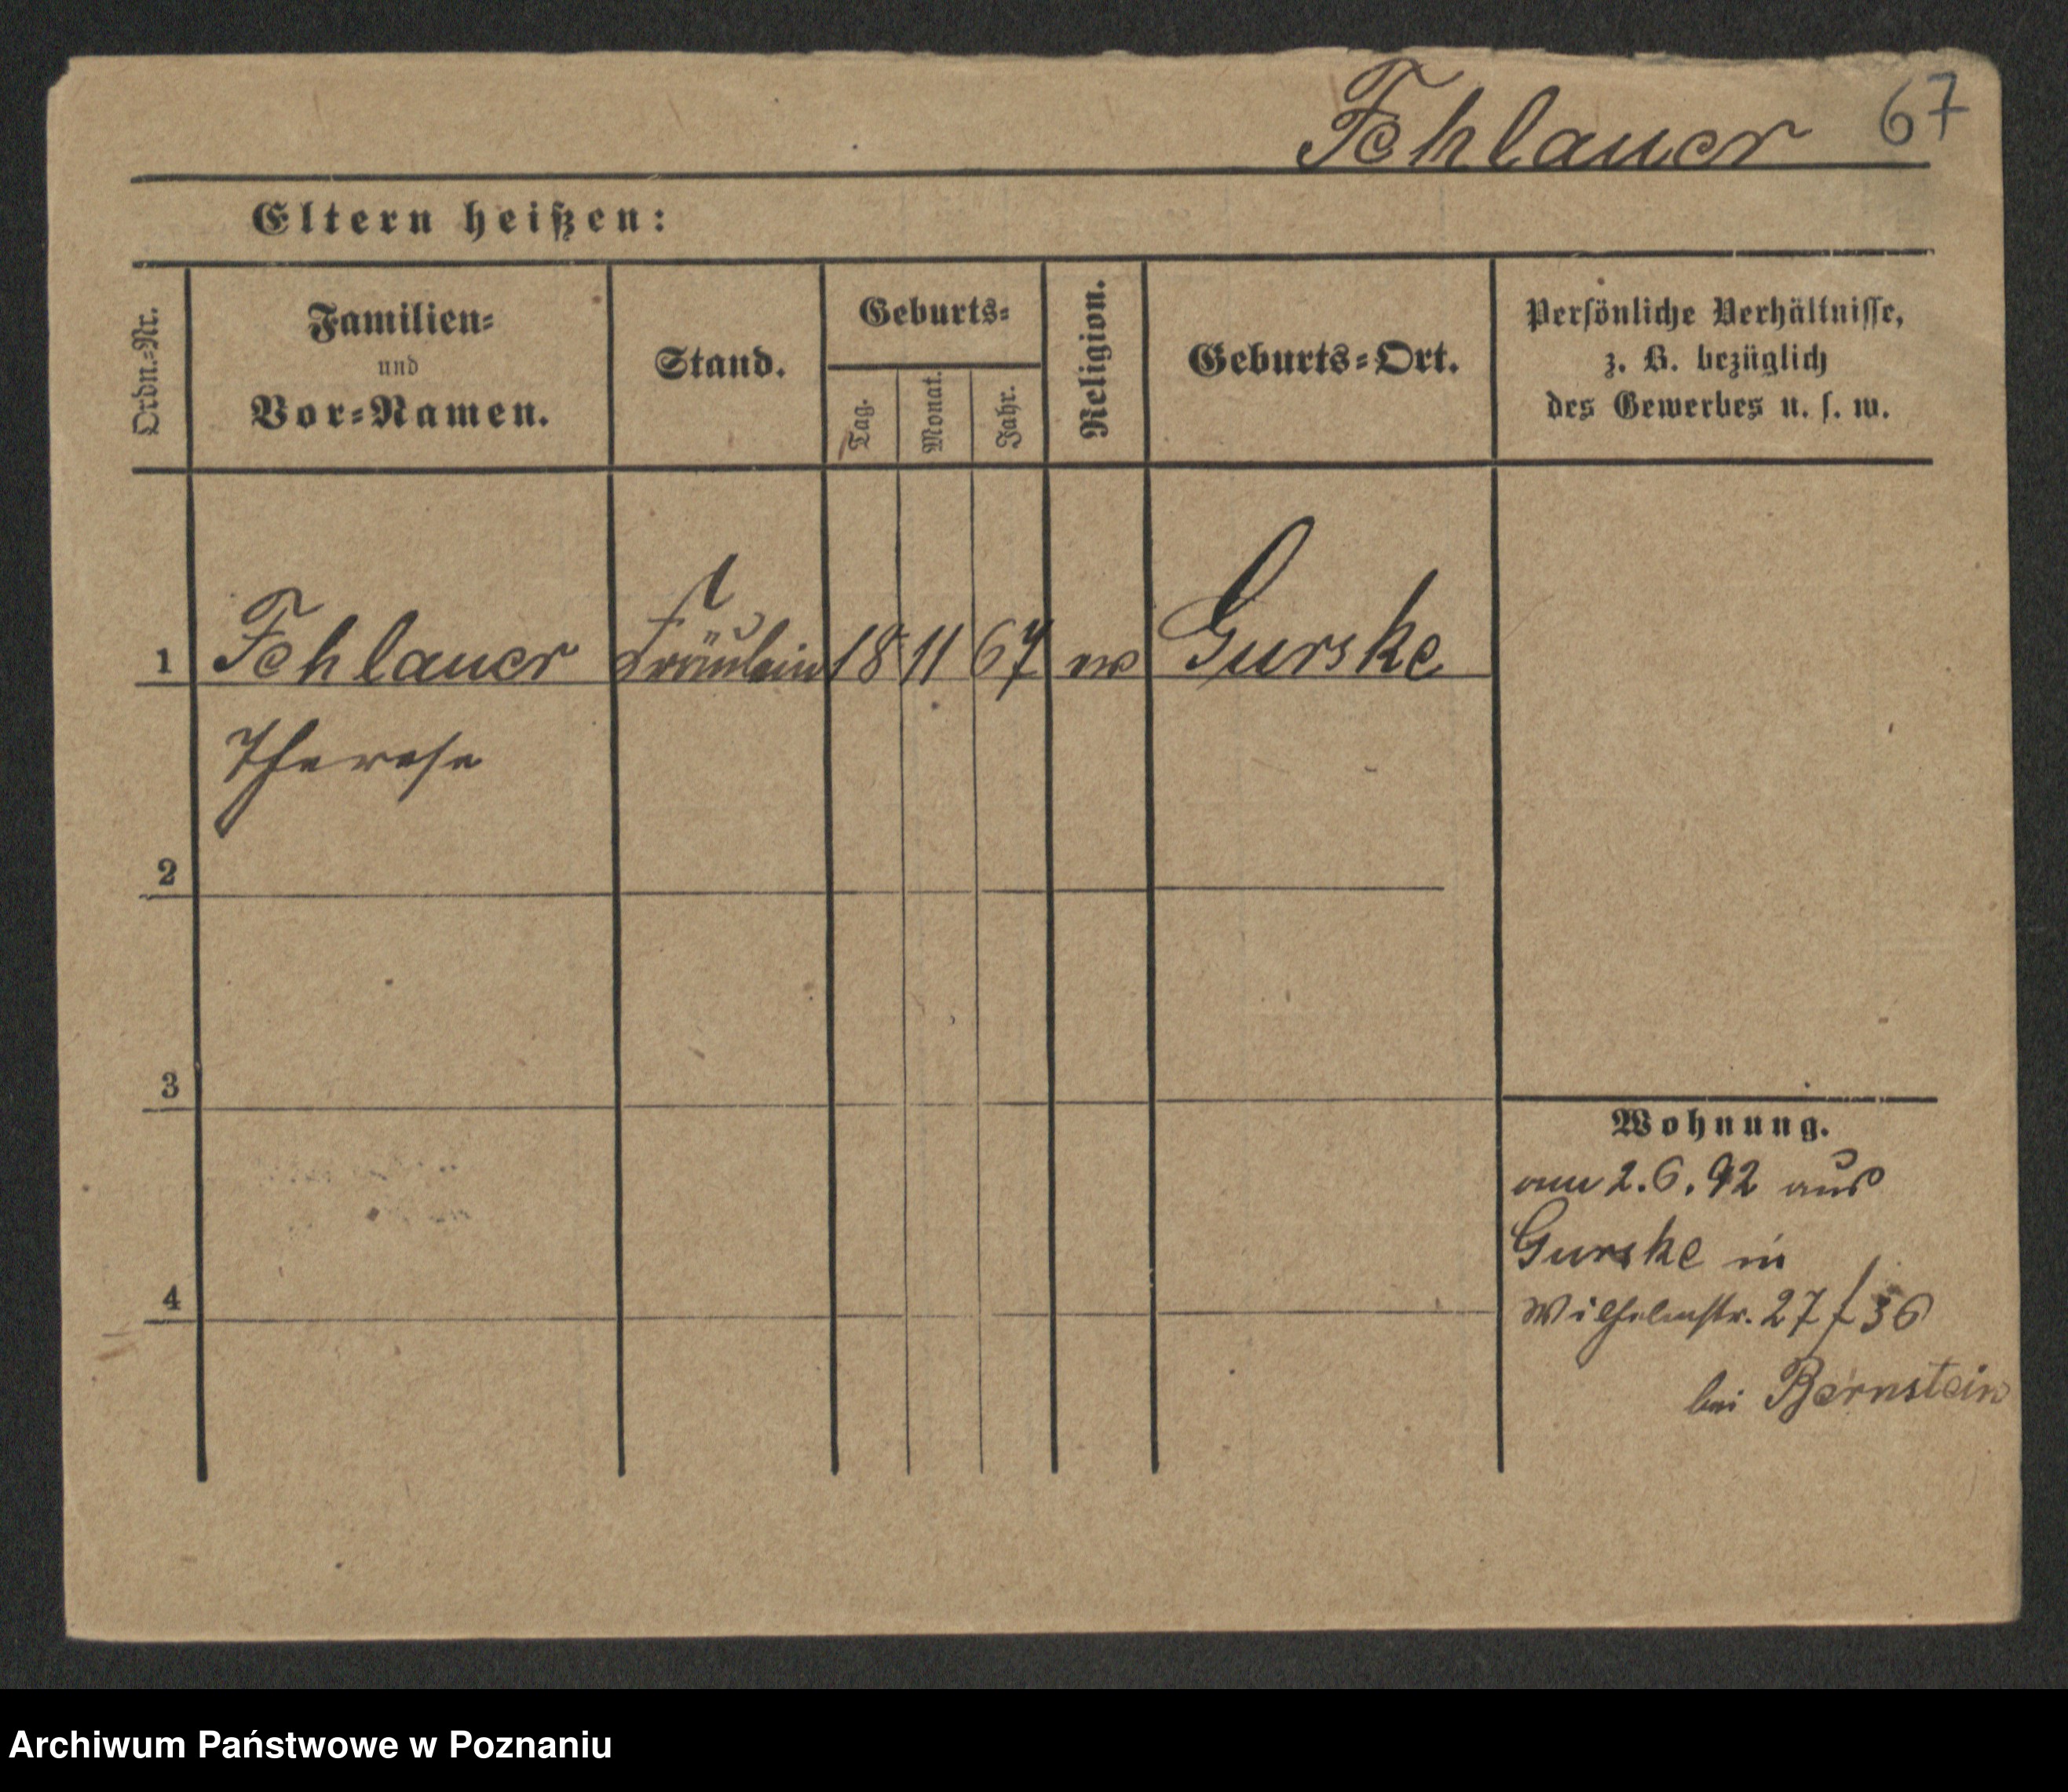 Fehlauer 67
Eltern heißen:
Ordn.-Nr.
Familien-
und
Vor-Namen.
Stand.
Geburts-
Tag.
Monat.
Jahr.
Religion.
Geburts-Ort.
Persönliche Verhältnisse,
z. B. bezüglich
des Gewerbes u. s. w.
1 Fehlauer Fräulein 18 11 67 ev Gurske
Therese
2
3
4
Wohnung.
am 2.6.92 aus
Gurske in
Wilhelmstr. 27 / 36
bei Bernstein
Archiwum Państwowe w Poznaniu